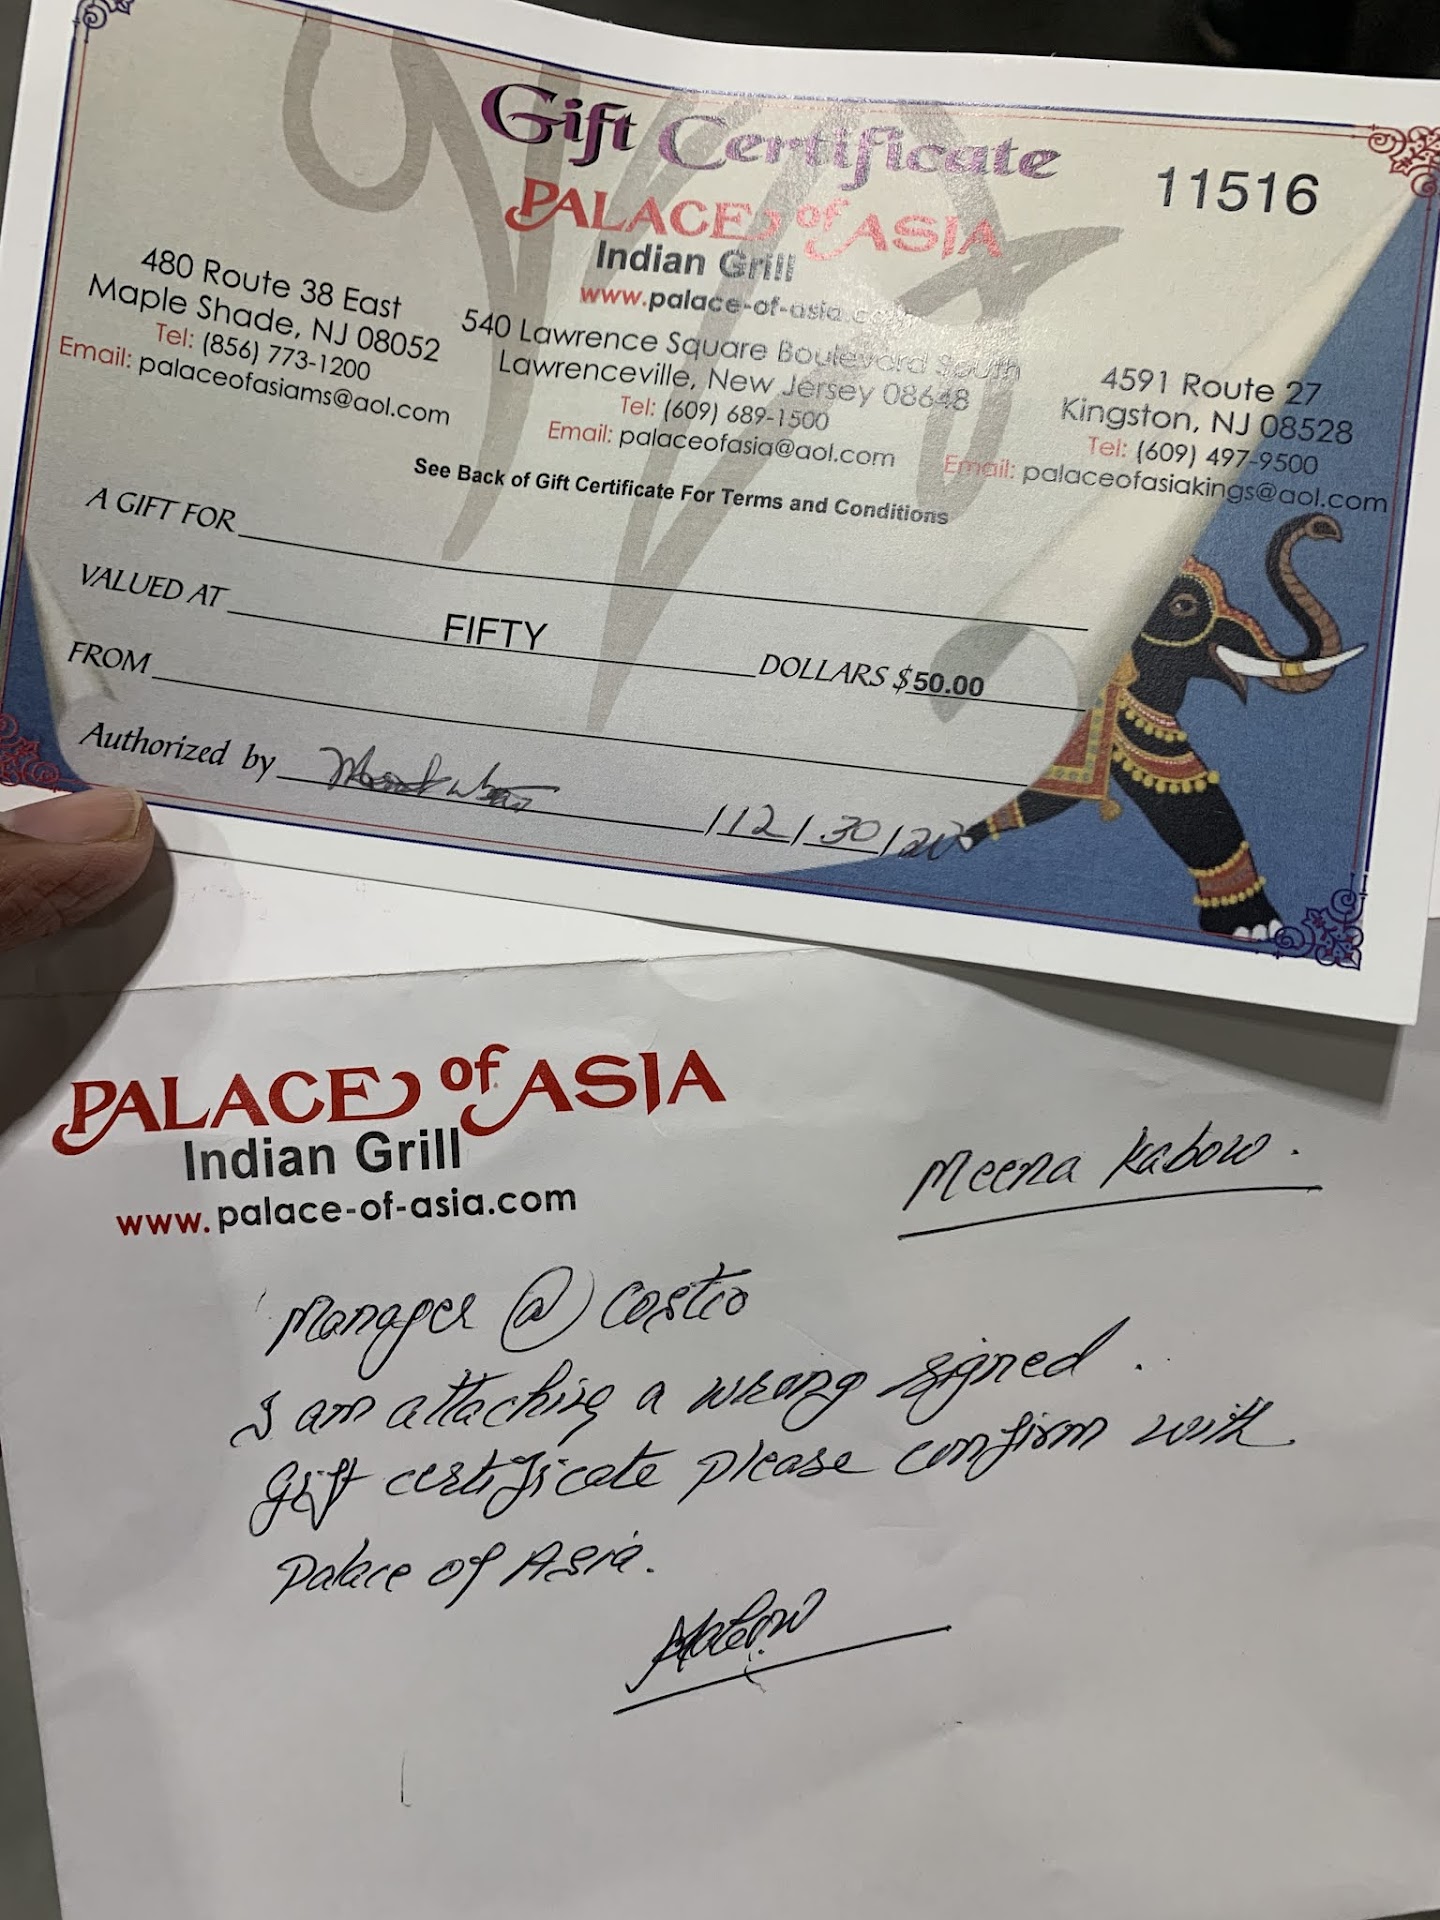 Gift Certificate
11516
PALACE of ASIA
Indian Grill
www.palace-of-asia.com
480 Route 38 East
Maple Shade, NJ 08052
Tel: (856) 773-1200
Email: palaceofasiams@aol.com
540 Lawrence Square Boulevard South
Lawrenceville, New Jersey 08648
Tel: (609) 689-1500
Email: palaceofasia@aol.com
4591 Route 27
Kingston, NJ 08528
Tel: (609) 497-9500
Email: palaceofasiakings@aol.com
See Back of Gift Certificate For Terms and Conditions
A GIFT FOR
VALUED AT FIFTY DOLLARS $50.00
FROM
Authorized by /12/30/20
PALACE of ASIA
Indian Grill
www.palace-of-asia.com
Meena Kaboro.
Manager @ Costco
I am attaching a wrong signed.
Gift certificate please confirm with
Palace of Asia.